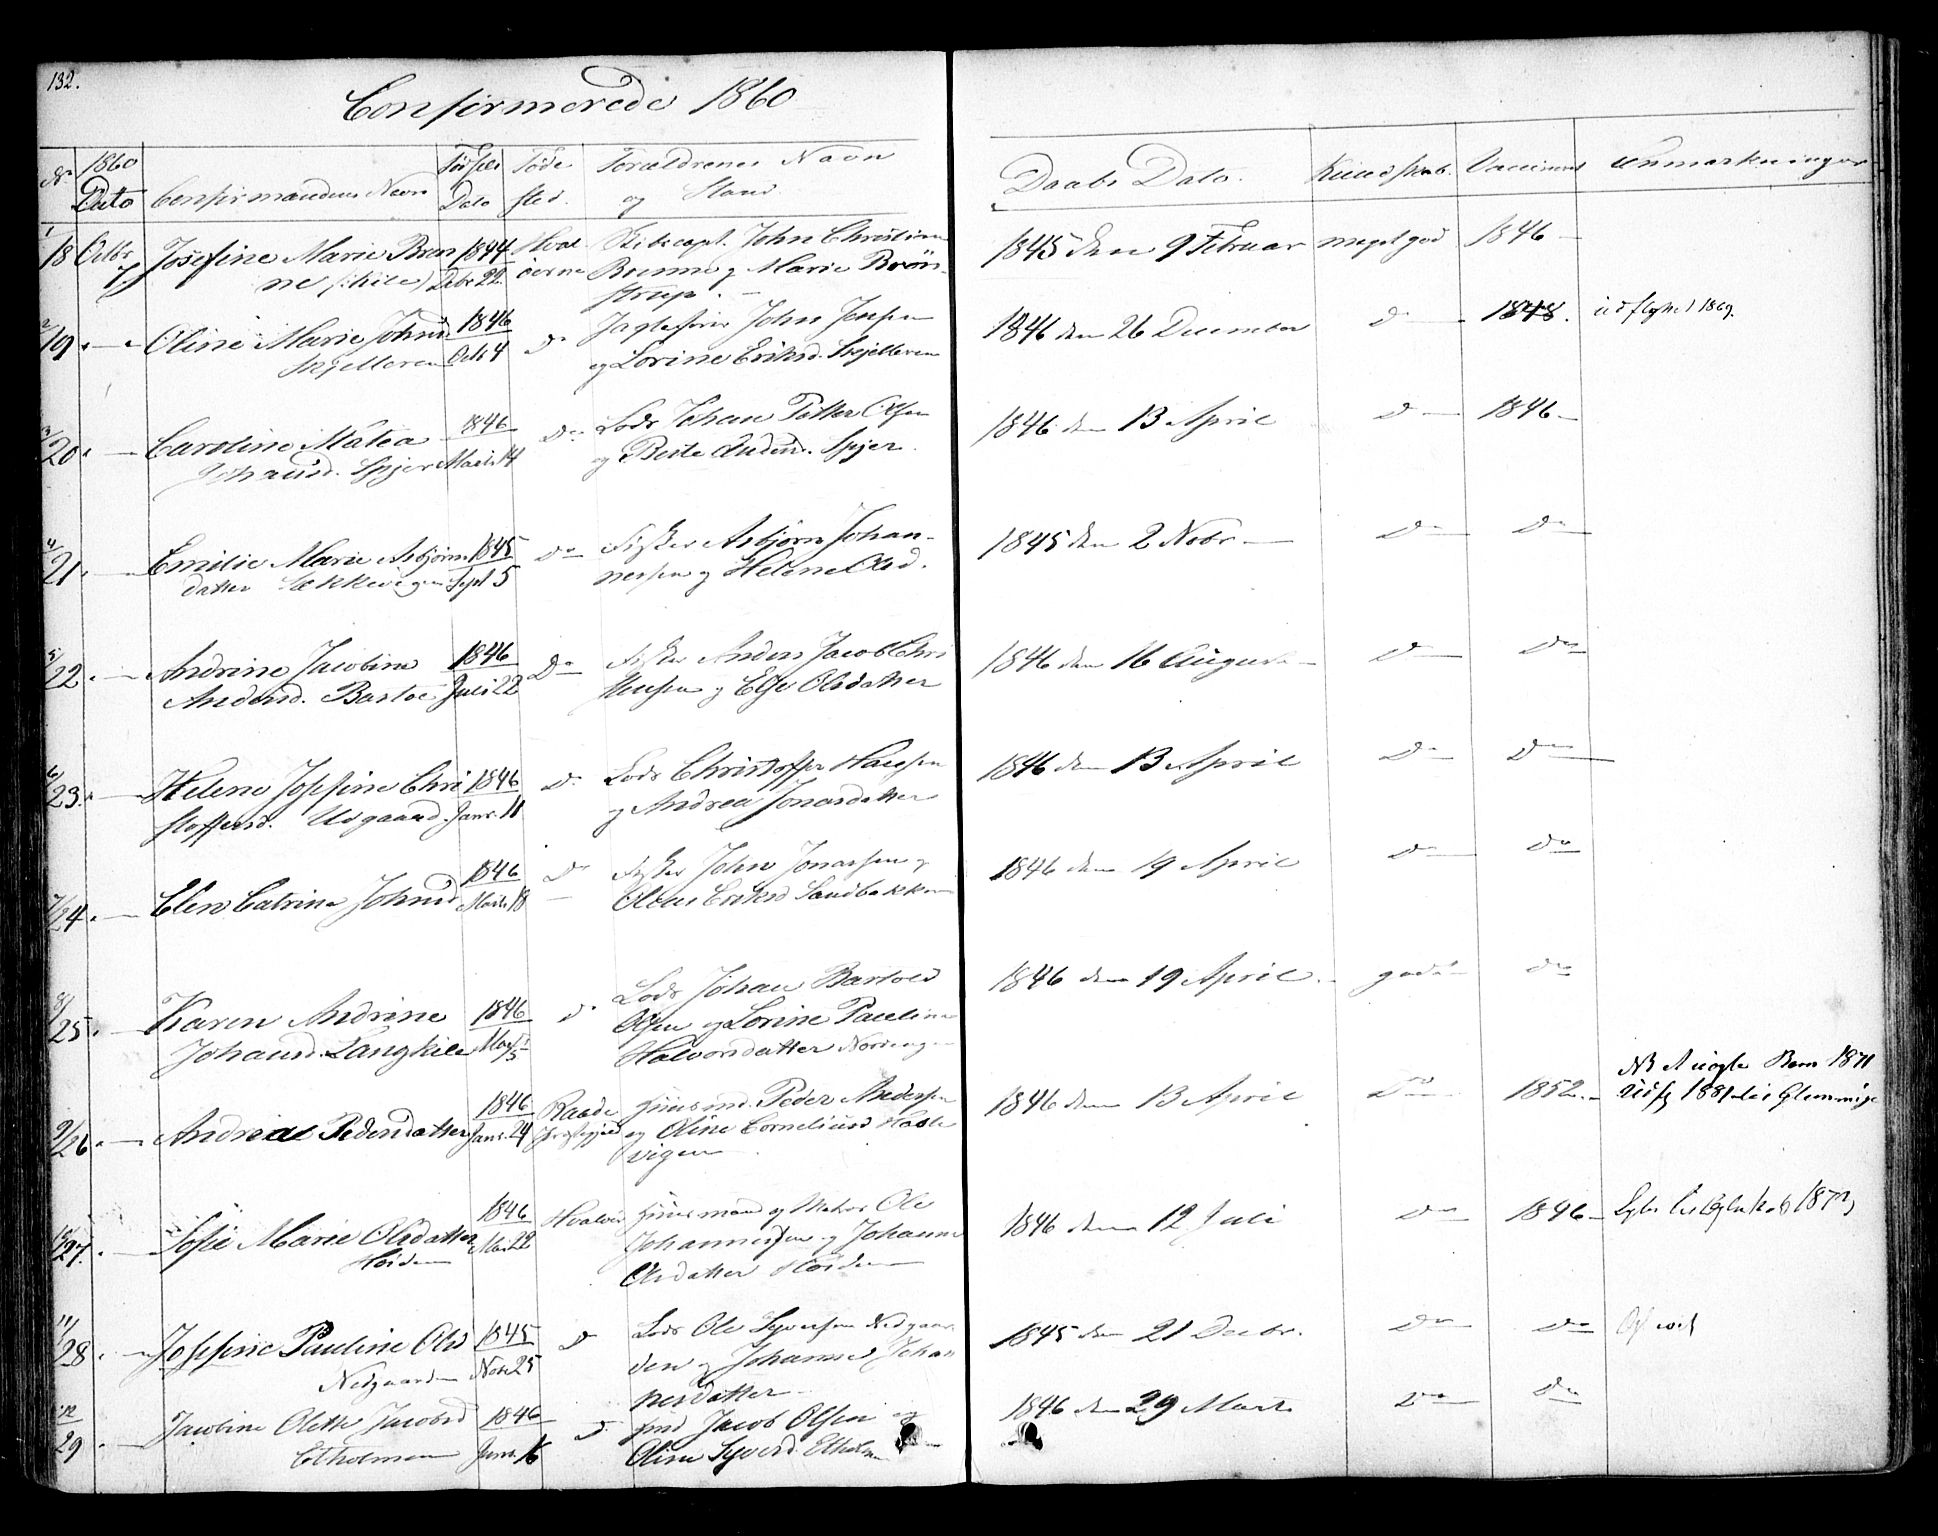 132.
Confirmerede 1860
No 1860 Dato Confirmandens Navn Fødsels Dato Føde sted. Forældrenes Navn og Stand Daabs Dato. Kundskab. Vaccineret Anmærkninger
1/18 Octbr 7 Josefine Marie Bron 1844 Hval Skibscapt. John Christian 1845 den 9 Februar meget god 1846
ne (Kile) Debr 22 øerne Bronne og Marie Brøn-
strup.
2/19 Oline Marie Johnsd 1846 Do Jagtefører John Jensen 1846 den 26 December Do 1848. udflyttet 1869.
Skjelleren Octb 4 og Lorine Eriksd. Skjelleren
3/20 Caroline Matea 1846 Do Lods Johan Petter Olsen 1846 den 13 April Do 1846
Johansd. Spjer Marts 14 og Berte Andersd. Spjer.
4/21 Emilie Marie Asbjørns 1845 Do Fisker Asbjørn Johan- 1845 den 2 Nobr Do Do
datter Sækkevigen Sept 5 nessen og Helene Olsd.
5/22 Andrine Jacobine 1846 Do Fisker Anders Jacob Chri 1846 den 16 August Do Do
Andersd. Bastoe Juli 22 stensen og Else Olsdatter
6/23 Helene Josefine Chri 1846 Do Lods Christoffer Hansen 1846 den 13 April Do Do
stoffersd. Urgaard. Janr. 11 og Andrea Jonasdatter
7/24 Elen Catrine Johnsd 1846 Do Fisker John Jonassen og 1846 den 19 April Do Do
Marts 18 Olene Eriksd Sandbakken
8/25 Karen Andrine 1846 Do Lods Johan Bartold 1846 den 19 April. god Do
Johansd. Langkile May 5 Olsen og Lorine Pauline
Halvorsdatter
9/26 Andrea Pedersdatter 1846 Janr. 24 Raade Præstegjeld Huusmd. Peder Andersen 1846 den 13 April Do 1852. NB Uægte Barn 1871
og Oline Corneliusd Hasle Udfl 1881 til Glemminge
vigen
10/27. Sofie Marie Olsdatter 1846 Hvaløer Huusmand og Matros Ole 1846 den 12 Juli Do 1846
Høiden Mai 22 Johannessen og Johanne
Olsdatter Høiden
11/28 Josefine Pauline Olsd 1845 Do Lods Ole Syversen Nedgaar 1845 den 21 Decbr. Do Do
Nedgaarden Nobr 25 den og Johanne Johan
nesdatter
12/29 Jacobine Olette Jacobsd 1846 Do Jacob Olsen og 1846 den 29 Marts Do Do
Etholmen Janr. 16 Oline Syversd. Etholmen